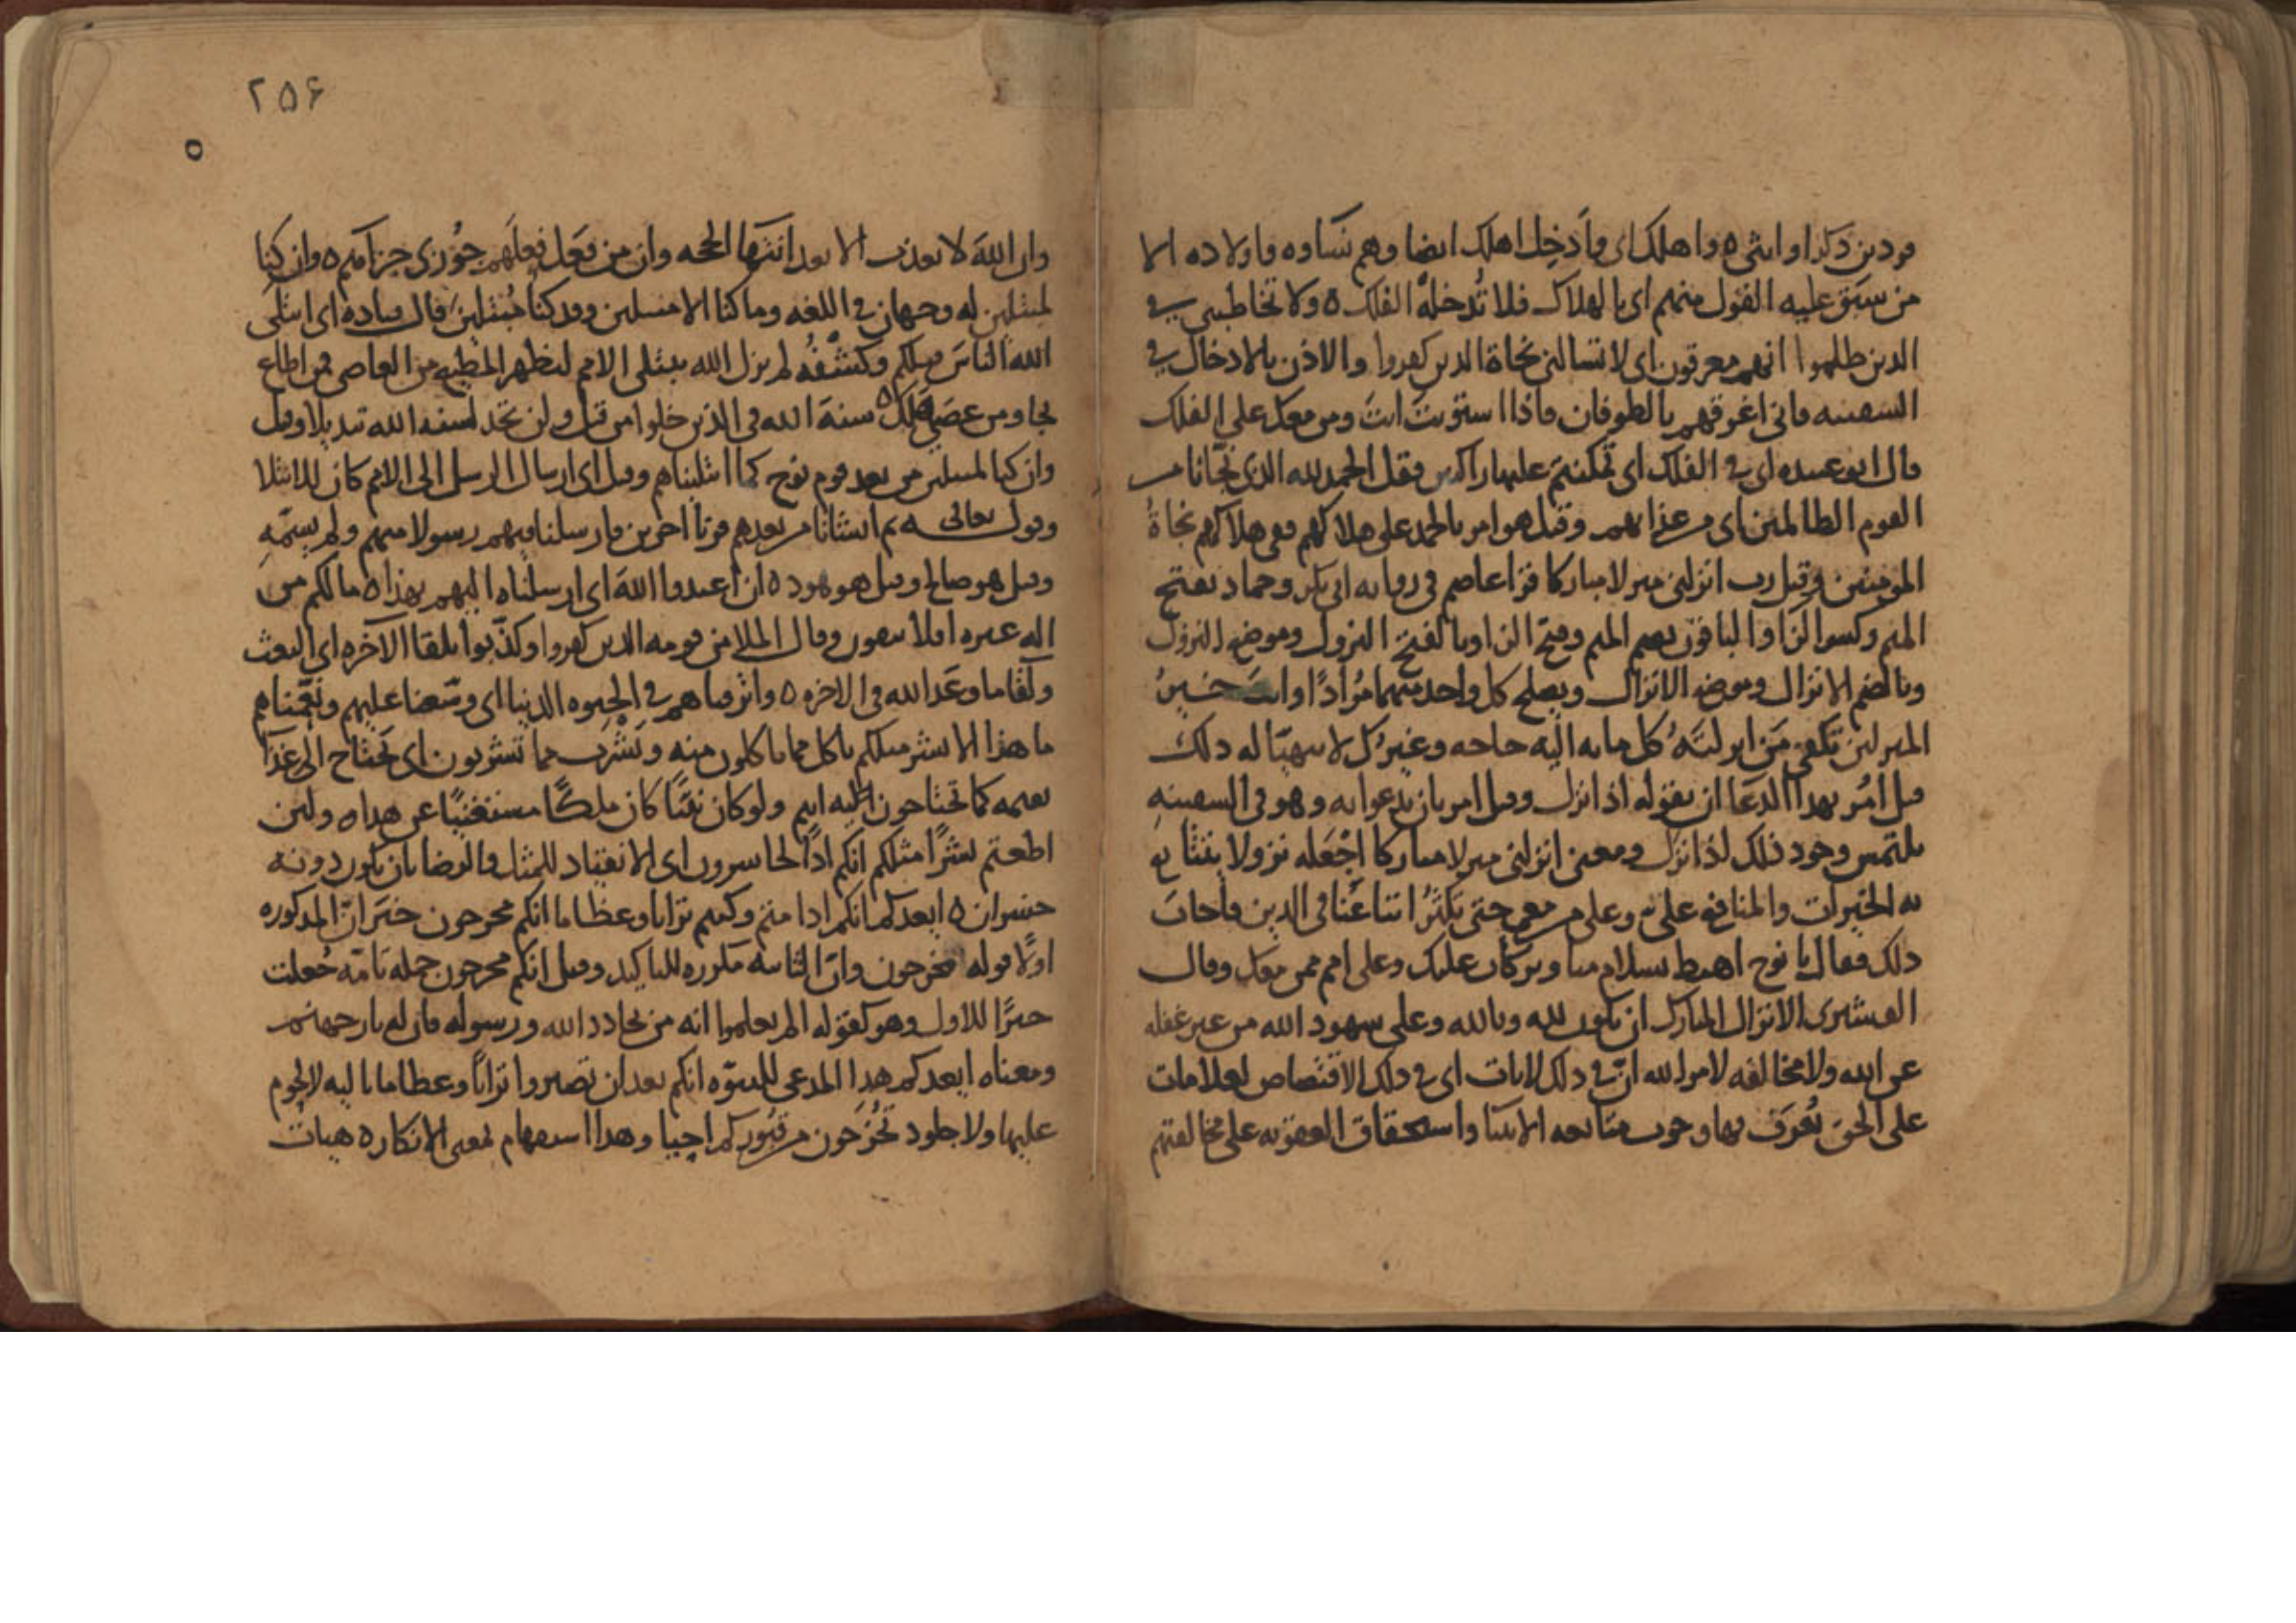 فردين ذكرا وانثى ه واهلك اى وأدخل اهلك ايضا وهم نساوه واولاده الا
من سبق عليه القول منهم اى بالهلاك فلا تُدخله الفلك ه ولا تخاطبنى فى
الذين ظلموا انهم مغرقون اى لا تسالنى نجاة الذين كفروا والاذن بالادخال فى
السفينه فانى اغرقهم بالطوفان فاذا استويت انت ومن معك على الفلك
قال ابو عبيده اى فى الفلك اى تمكنتم عليها راكبين فقل الحمد لله الذى نجّانا من
القوم الظالمين اى من عذابهم وقيل هو امر بالحمد على هلاكهم ففى هلاكهم نجاةُ
المومنين وقيل رب انزلنى منزلا مباركا قرا عاصم فى روايه ابى بكر وحماد بفتح
الميم وكسر الزا والباقون بضم الميم وفتح الزا وبالفتح النزول وموضع النزول
وبالضم الانزال وموضع الانزال ويصلح كل واحد منهما مُرادًا وانت خيرُ
المنزلين تكفى مَن انزلتَهُ كل مابه اليه حاجه وغيرك لا يتهيّا له ذلك
قيل أُمر بهذا الدعا ان يقوله اذا نزل وقيل امر بان يدعوا به وهو فى السفينهِ
يلتمس وجود ذلك اذا نزل ومعنى انزلنى منزلا مباركا اجْعَله نزولا يتتابع
به الخيرات والمنافع علىّ وعلى من معى حتى يكثُرُ اتباعُنا فى الدين فاجاب
ذلك فقال يا نوح اهبط بسلام منا وبركات عليك وعلى امم ممن معك وقال
القشيرى الانزال المبارك ان يكون لله وبالله وعلى شهود الله من غير غفله
عن الله ولا مخالفه لامر الله انّ فى ذلك لايات اى فى ذلك الاقتصاص لعلامات
على الحق تُعرَف بها وجوب متابعه الانبيا واستحقاق العقوبه على مخالفتهم
٢٥۶
٥
وان اللهَ لا يعذب الا بعد انتهَا الحجه وان من فعَل فعلَهم جُوزى جزآهم ه وان كنا
لمبتلين له وجهان فى اللغه وما كنا الا مبتلين وقد كنا مُبتلين قال قتاده اى ابتلى
الله الناسَ قبلكم وكَشْفُه لم يزل الله يبتلى الامم ليظهر المطيع من العاصى فمن اطاع
نجا ومن عصى هلك ه سنة الله فى الذين خلوا من قبل ولن تجد لسنه الله تبديلا وقيل
وان كنا لمبتلين من بعد قوم نوح كما ابتليناهم وقيل اى ارسال الرسل الى الامم كان للابتلا
وقوله تعالى ه ثم انشانا من بعدهم قرنا اخرين فارسلنا فيهم رسولا منهم ولم يسمّهِ
وقيل هو صالح وقيل هو هود ه ان اعبدوا اللهَ اى ارسلناه اليهم بهذا ه مالكم من
اله غيره افلا تتقون وقال الملا من قومه الذين كفروا وكذّبوا بلقا الآخره اى البعث
ولقا ما وعَد الله فى الاخره ه واترفناهم فى الحيوه الدنيا اى وسّعنا عليهم ونعّمناهم
ما هذا الا بشر مثلكم ياكل مما تاكلون منه ويَشرب مما تشربون اى يَحتاج الى غذَآ
يعمه كما تحتاجون اليه انتم ولو كان نبيًا كان ملكًا مستغنيًا عن هذا ه ولئن
اطعتم بشرًا مثلكم انكم اذًا لخاسرون اى الانقياد للمثل والرضا بان يكون دونه
خسران ه ايعدكم انكم اذا متم وكنتم ترابا وعظاما انكم مخرجون خبَر انّ المذكوره
اولًا قوله مخرجون وانّ الثانيه مكرره للتاكيد وقيل انكم مخرجون جمله تامّه جُعلت
خبرًا للاول وهو كقوله الم يعلموا انه من يحادد الله ورسوله فان له نار جهنم
ومعناه ايعدكم هذا المدعى للنبوّه انكم بعد ان تصيروا ترابًا وعظاما باليه لا لحوم
عليها ولا جلود تُخرَجون من قبوركم احيا وهذا استفهام بمعنى الانكار ه هيهات